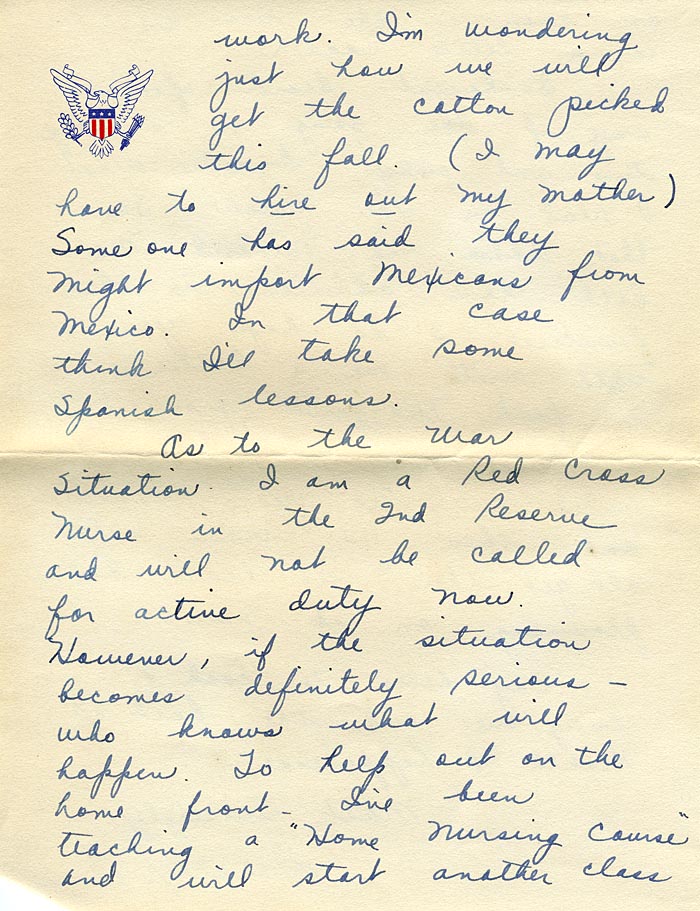 work. I'm wondering
just how we will
get the cotton picked
this fall. (I may
have to hire out my mother)
Some one has said they
might import Mexicans from
Mexico. In that case
think I'll take some
Spanish lessons.
As to the War
Situation. I am a Red Cross
Nurse in the 2nd Reserve
and will not be called
for active duty now.
However, if the situation
becomes definitely serious –
who knows what will
happen. To help out on the
home front – I've been
teaching a "Home Nursing Course"
and will start another class